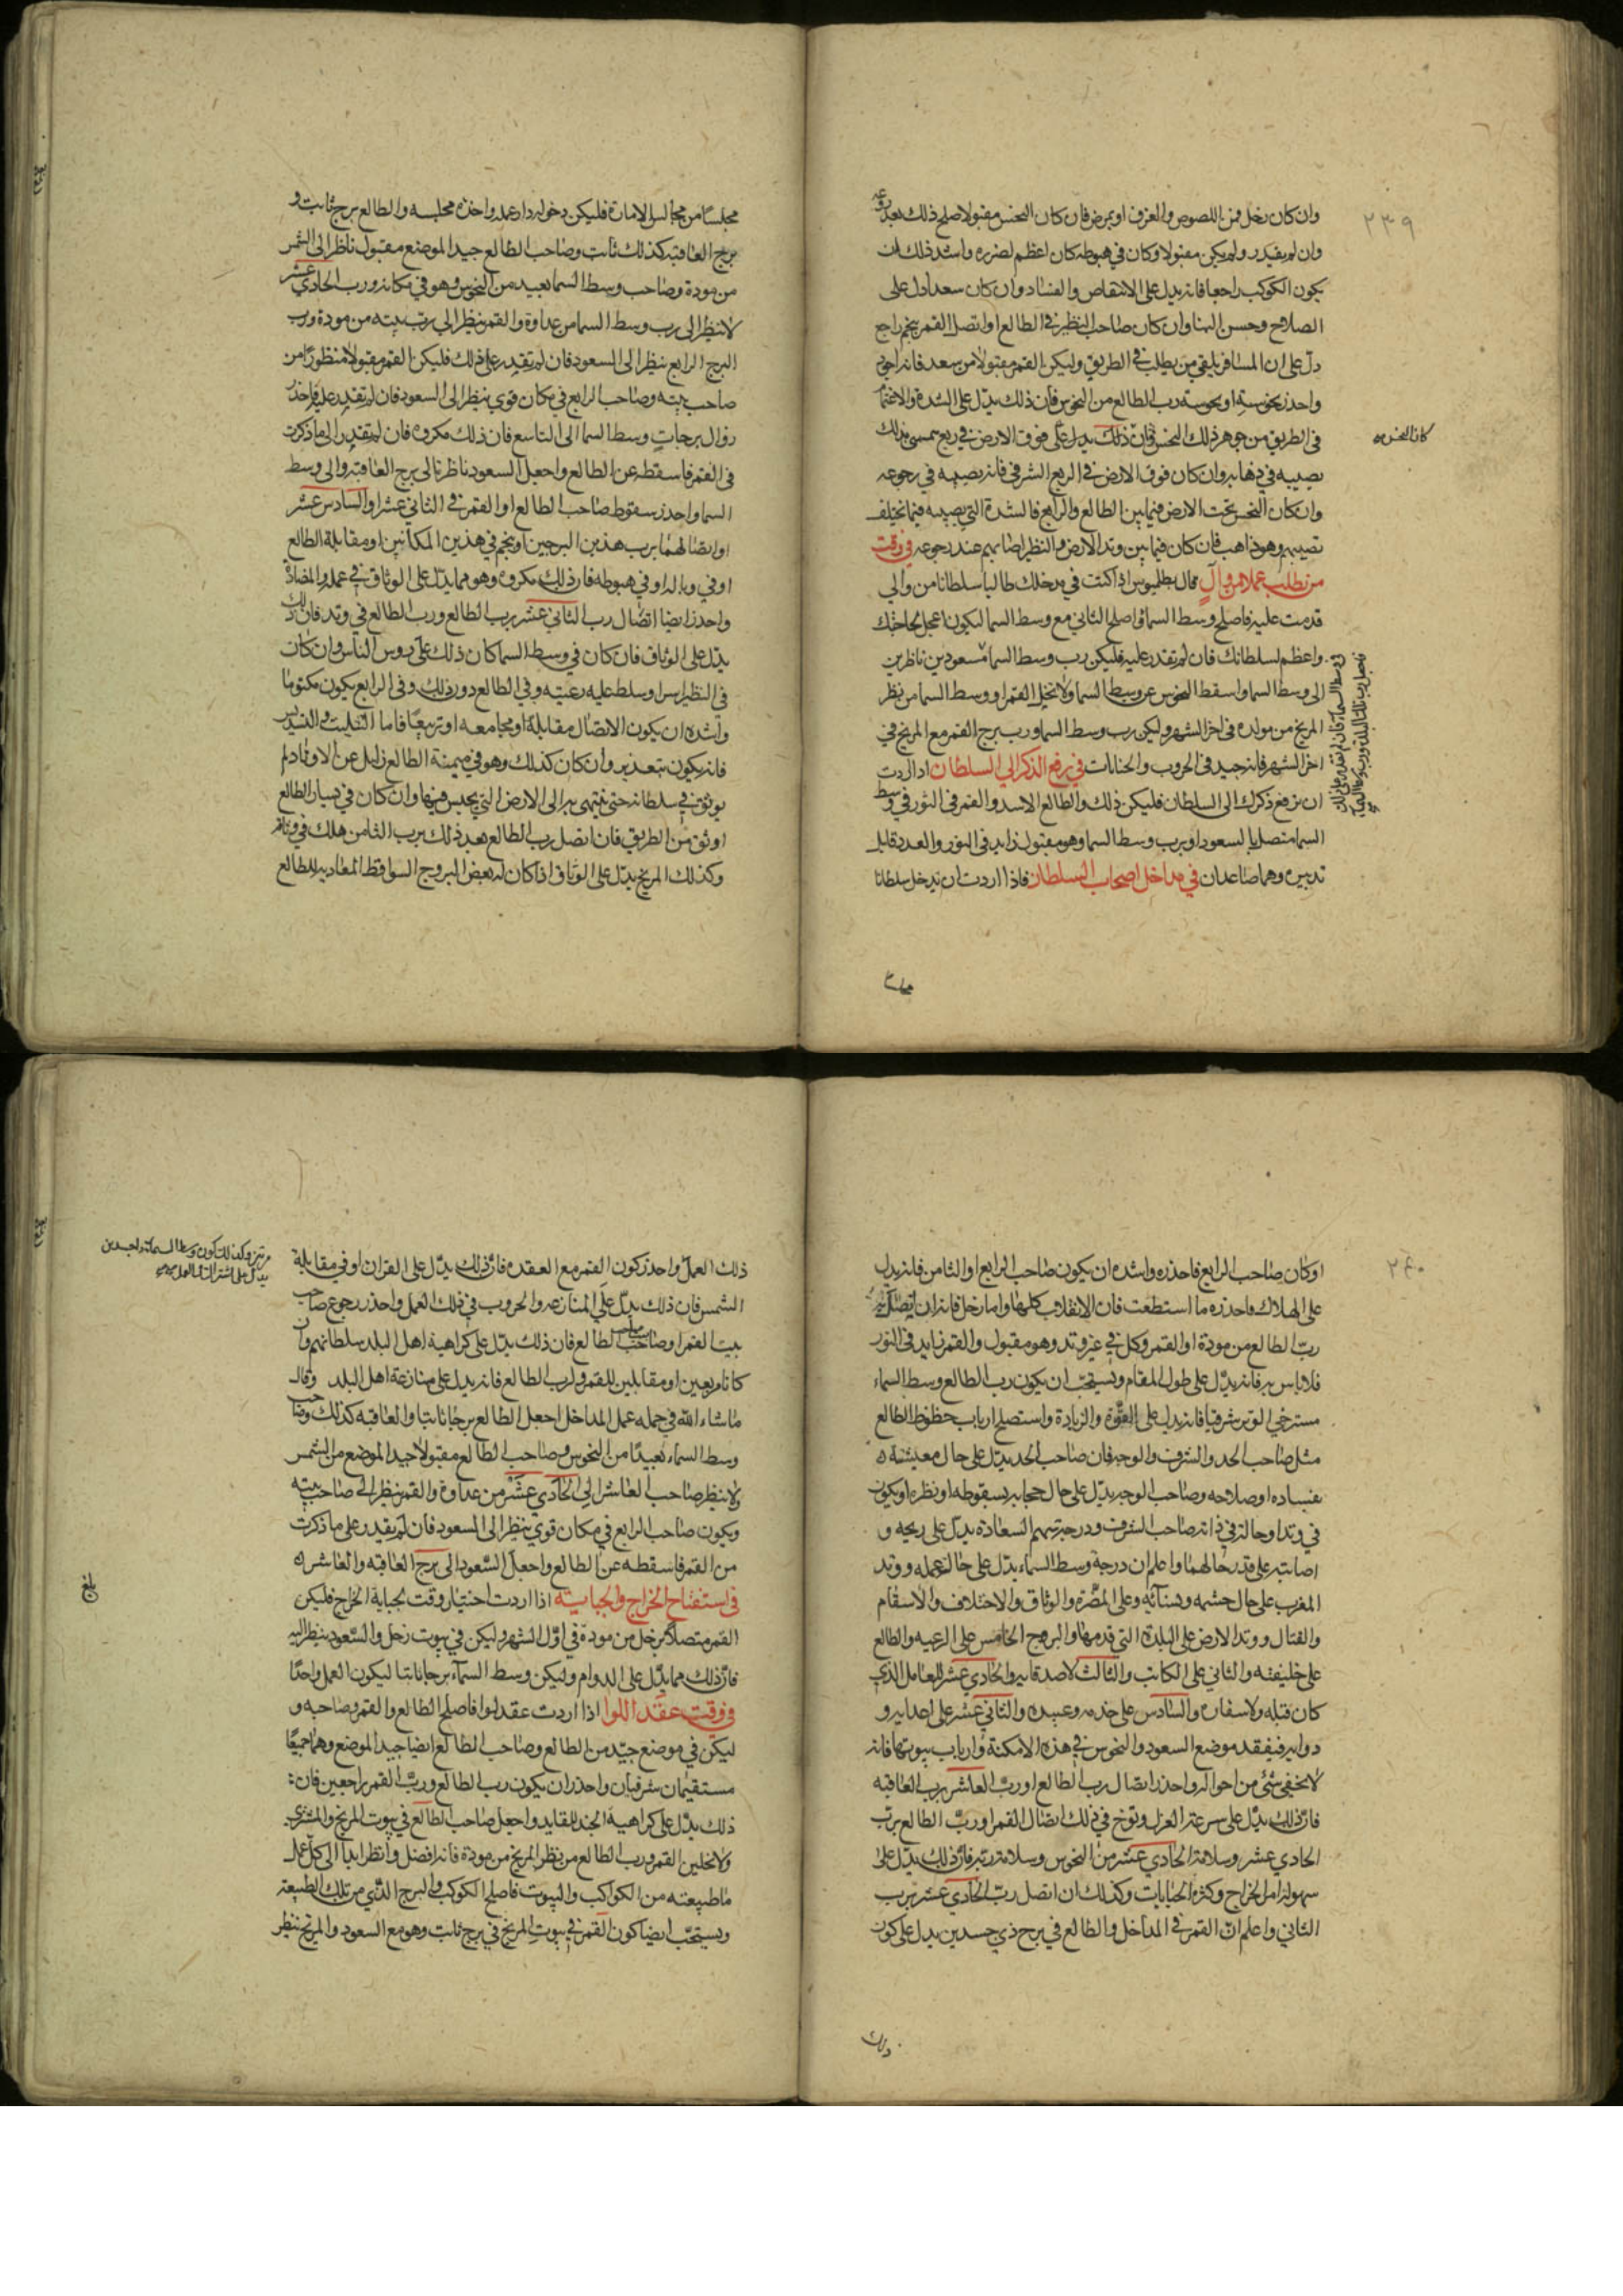 ٢٣٩
وان كان زحل فمن اللصوص والغرق او بمرض فان كان النحس مقبولا صلح ذلك بعد
وان لم يقدر ولم يكن مقبولا وكان في هبوطه كان اعظم لضرره واشد ذلك ان
يكون الكوكب راجعا فانه يدل على الانتقاص والفساد وان كان سعدا دل على
الصلاح وحسن وان كان صاحب النظير في الطالع او اتصل القمر بنجم راجع
دل على ان المسافر يلقي من يطلب في الطريق وليكن القمر مقبولا من سعد فانه اجود
واحذر نحوسته او نحوسة رب الطالع من النحوس فان ذلك يدل على الشدة والاغتمام
في الطريق من جوهر ذلك النحس فان ذلك يدل على فوق الارض في ربع
كان النحس
يصيبه في ذهابه وان كان فوق الارض في الربع الشرقي فانه يصيبه في رجوعه
وان كان النحس تحت الارض فيما بين الطالع والرابع فالشدة التي تصيبه فيما تخلف
تصيبهم وهو ذاهب فان كان فيما بين وتد الارض والنظير اصابهم عند رجوعه في وقت
من يطلب عملا من وال قال بطليموس اذا كنت في مدخلك طالبا سلطانا من والي
قدمت عليه فاصلح وسط السما واصلح الثاني مع وسط السما ليكون اعجل لحاجتك
واعظم لسلطانك فان لم تقدر عليه فليكن رب وسط السما مسعودين ناظرين
الى وسط السما واسقط النحوس عن وسط السما ولا تخل القمر او وسط السما من نظر
المريخ من مودة في اخر الشهر وليكن رب وسط السما ورب برج القمر مع المريخ في
اخر الشهر فانه جيد في الحروب والجنايات في رفع الذكر الي السلطان اذا اردت
ان ترفع ذكرك الى السلطان فليكن ذلك والطالع الاسد والقمر في الثور في وسط
السما متصل بالسعود او برب وسط السما وهو مقبول زايد في النور والعدد قابل
تدبيره وهما صاعدان في مداخل اصحاب السلطان فاذا اردت ان تدخل سلطانا
مجلسا
مجلسا من مجالس الامارة فليكن دخوله دار عمله واخذه مجلسه والطالع برج ثابت و
برج العاقبة كذلك ثابت وصاحب الطالع جيد الموضع مقبول ناظرا الى الشمس
من مودة وصاحب وسط السما بعيد من النحوس وهو في مكانه ورب الحادي عشر
لا ينظر الى رب وسط السما من عداوة والقمر ينظر الى رب بيته من مودة ورب
البرج الرابع ينظر الى السعود فان لم تقدر على ذلك فليكن القمر مقبولا منظورا من
صاحب بيته وصاحب الرابع في مكان قوي ينظر الى السعود فان لم تقدر عليه فاحذر
زوال برجات وسط السما الى التاسع فان ذلك مكروه فان لم تقدر الى ما ذكرت
في القمر فاسقطه عن الطالع واجعل السعود ناظرة الى برج العاقبة والى وسط
السما واحذر سقوط صاحب الطالع او القمر في الثاني عشر او السادس عشر
او اتصالهما برب هذين البرجين او بنجم في هذين المكانين او مقابلة الطالع
او في وباله او في هبوطه فان ذلك مكروه وهو مما يدل على الوثاق في عمله والمضادة
واحذر ايضا اتصال رب الثاني عشر برب الطالع ورب الطالع في وتد فان ذلك
يدل على الوثاق فان كان في وسط السما كان ذلك على روس الناس وان كان
في النظير اسر او سلط عليه رعيته وفي الطالع دون ذلك وفي الرابع يكون مكتوما
واشده ان يكون الاتصال مقابلة او مجامعة او تربيعا فاما التثليث والتسديس
فانه يكون بتعذير وان كان كذلك وهو في ميمنة الطالع زايل عن الاوتاد لم
يوثق في سلطانه حتى ينتهى به الى الارض التي يحبس فيها وان كان في يسار الطالع
اوثق من الطريق فان اتصل رب الطالع بعد ذلك برب الثامن هلك في وثاقه
وكذلك المريخ يدل على الوثاق اذا كان له بعض البروج السواقط المعادية للطالع
٢٤٠
او كان صاحب الرابع فاحذره واشده ان يكون صاحب الرابع او الثامن فانه يدل
على الهلاك فاحذره ما استطعت فان الانقلاب كلها واما زحل فانه ان اتصل به
رب الطالع من مودة او القمر وكل في غير وتد وهو مقبول والقمر زايد في النور
فلا باس به فانه يدل على طول المقام ويستحب ان يكون رب الطالع وسط السماء
مسترخي الوتر شرقيا فانه يدل على القوة والزيادة واستصلح ارباب حظوظ الطالع
مثل صاحب الحد والشرف والوجه فان صاحب الحد يدل على حال معيشته
بفساده او صلاحه وصاحب الوجه يدل على حال حجابه بسقوطه او نظره او يكون
في وتد او حالته في ذاته وصاحب الشرف ودرجة سهم السعادة يدل على ربحه و
اصابته على قدر حالهما واعلم ان درجة وسط السماء يدل على حال عمله ووتد
المغرب على حال حشمه وهنائه وعلى المضرة والوثاق والاختلاف والاسقام
والقتال ووتد الارض على البلدة التي قدمها والبرج الخامس على الرعيه والطالع
على خليفته والثاني على الكاتب والثالث لاصدقايه والحادي عشر للعامل الذي
كان قبله ولاسفاره والسادس على خدمه وعبيده والثاني عشر على اعدايه و
دوابه فيفقد موضع السعود والنحوس في هذه الامكنة وارباب بيوتها فانه
لا يخفي شئ من احواله واحذر اتصال رب الطالع او رب العاشر برب العاقبه
فان ذلك يدل على سرعة العزل وتوخ في ذلك اتصال القمر او رب الطالع برب
الحادي عشر وسلامة الحادي عشر من النحوس وسلامة ربه فان ذلك يدل على
سهولة امر الخراج وكثرة الجبايات وكذلك ان اتصل رب الحادي عشر برب
الثاني واعلم ان القمر في المداخل والطالع في برج ذي جسدين يدل على كون
ذلك
مرتين وكذلك كون وسط السما ذا جسدين
يدل على اشتراك في العمل
ذلك العمل واحذر كون القمر مع العقده فان ذلك يدل على القران او في مقابلة
الشمس فان ذلك يدل على المنازعه والحروب في ذلك العمل واحذر رجوع صاحب
بيت القمر او صاحب الطالع فان ذلك يدل على كراهية اهل البلد سلطانهم وان
كانا مربعين او مقابلين للقمر ولرب الطالع فانه يدل على منازعة اهل البلد وقال
ماشاء الله في جمله عمل المداخل اجعل الطالع برجا ثابتا والعاقبه كذلك وصاحب
وسط السماء بعيدا من النحوس وصاحب الطالع مقبولا جيد الموضع من الشمس
ولا ينظر صاحب العاشر الى الحادي عشر من عداوة والقمر ينظر الى صاحب بيته
ويكون صاحب الرابع في مكان قوي ينظر الى السعود فان لم يقدر على ما ذكرت
من القمر فاسقطه عن الطالع واجعل السعود الى برج العاقبه والعاشر
في استفتاح الخراج والجبايته اذا اردت اختيار وقت لجباية الخراج فليكن
بلغ
القمر متصلا بزحل من مودة في اول الشهر وليكن في بيوت زحل والسعود ينظر اليه
فان ذلك مما يدل على الدوام وليكن وسط السماء برجا ثابتا ليكون العمل واحدا
في وقت عقد اللوا اذا اردت عقد لوا فاصلح الطالع والقمر وصاحبه و
ليكن في موضع جيد من الطالع وصاحب الطالع ايضا جيد الموضع وهما جميعا
مستقيمان شرقيان واحذر ان يكون رب الطالع ورب القمر راجعين فان
ذلك يدل على كراهية الجند للقايد واجعل صاحب الطالع في بيوت المريخ والمشتري
ولا تخلين القمر ورب الطالع من نظر المريخ من مودة فانه افضل وانظر ابدا الى كل عمل
ما طبيعته من الكواكب والبيوت فاصلح الكوكب والبرج الذي من تلك الطبيعة
ويستحب ايضا كون القمر في بيوت المريخ في برج ثابت وهو مع السعود والمريخ ينظر